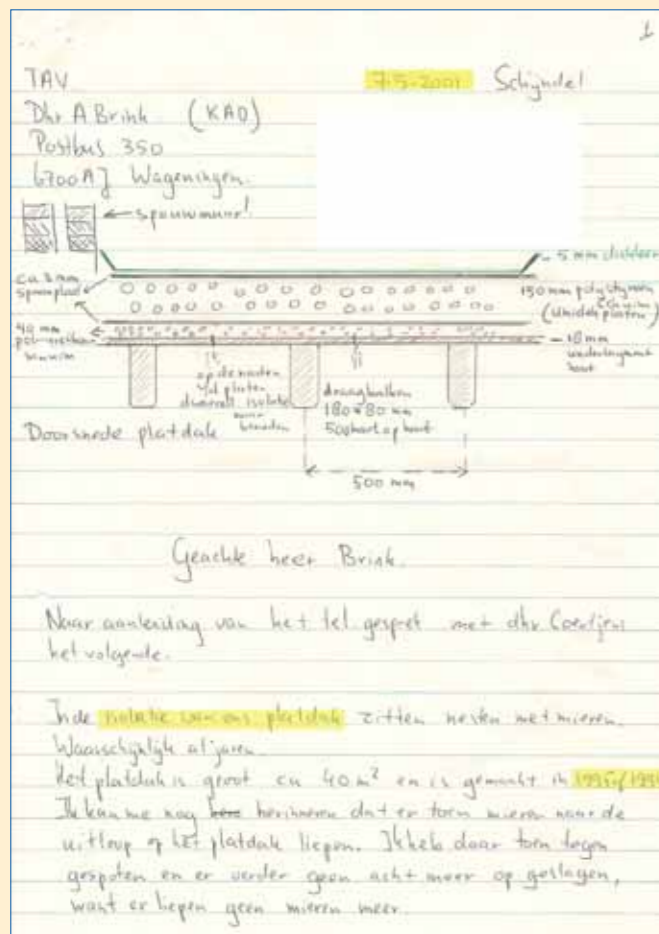 1
TAV
7-5-2001 Schijndel
Dhr A Brink (KAD)
Postbus 350
6700AJ Wageningen.
spouwmuur!
5 mm
ca 3 mm
spaanplaat
130 mm polystyreen
(Unidek platen)
40 mm
18 mm
underlayment
hout
op de naden
v/d platen
isolatie
naar
beneden
draagbalken
180 x 80 mm
500 hart op hart
Doorsnede platdak
500 mm
Geachte heer Brink.
Naar aanleiding van het tel. gesprek met dhr Coertjens
het volgende.
In de isolatie van ons platdak zitten nesten met mieren.
Waarschijnlijk al jaren.
Het platdak is groot ca 40 m² en is gemaakt in
Ik kan me nog herinneren dat er toen mieren naar de
uitloop op het platdak liepen. Ik heb daar toen tegen
gespoten en er verder geen acht meer op geslagen,
want er liepen geen mieren meer.